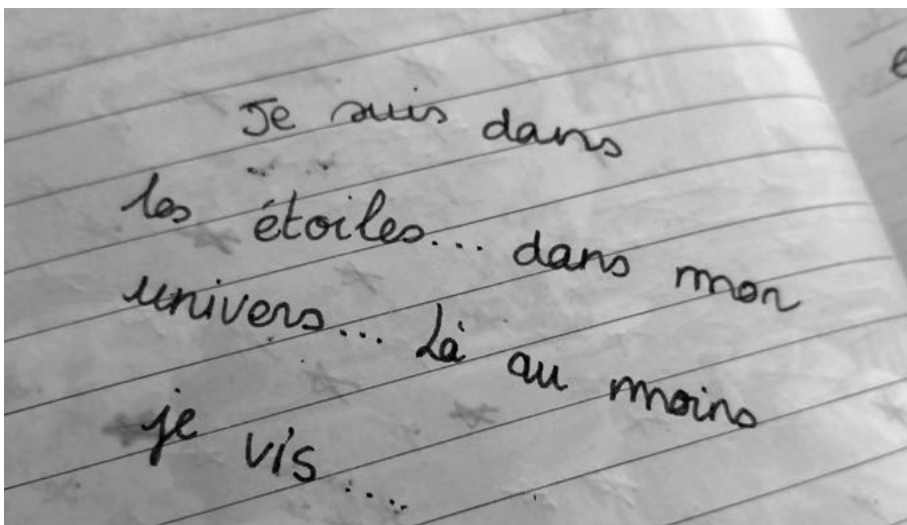 Je suis dans
les étoiles... dans mon
univers... Là au moins
je vis....